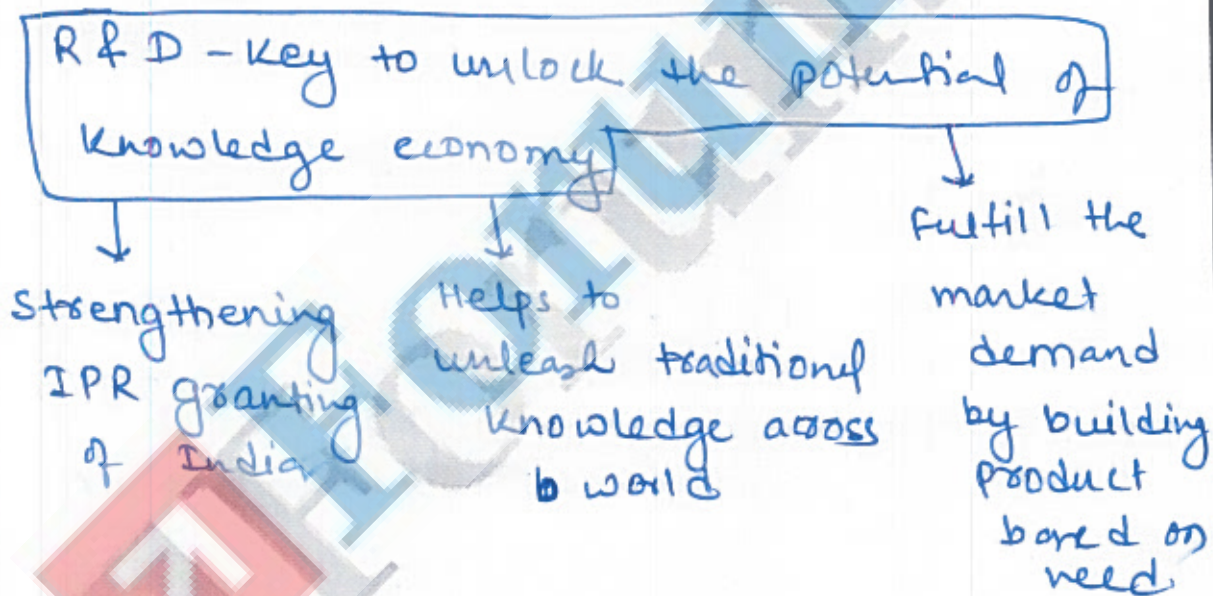 R & D - Key to unlock the potential of
knowledge economy
Strengthening
IPR granting
of India
Helps to
unleash traditional
knowledge across
world
Fulfill the
market
demand
by building
product
based on
need
Forum